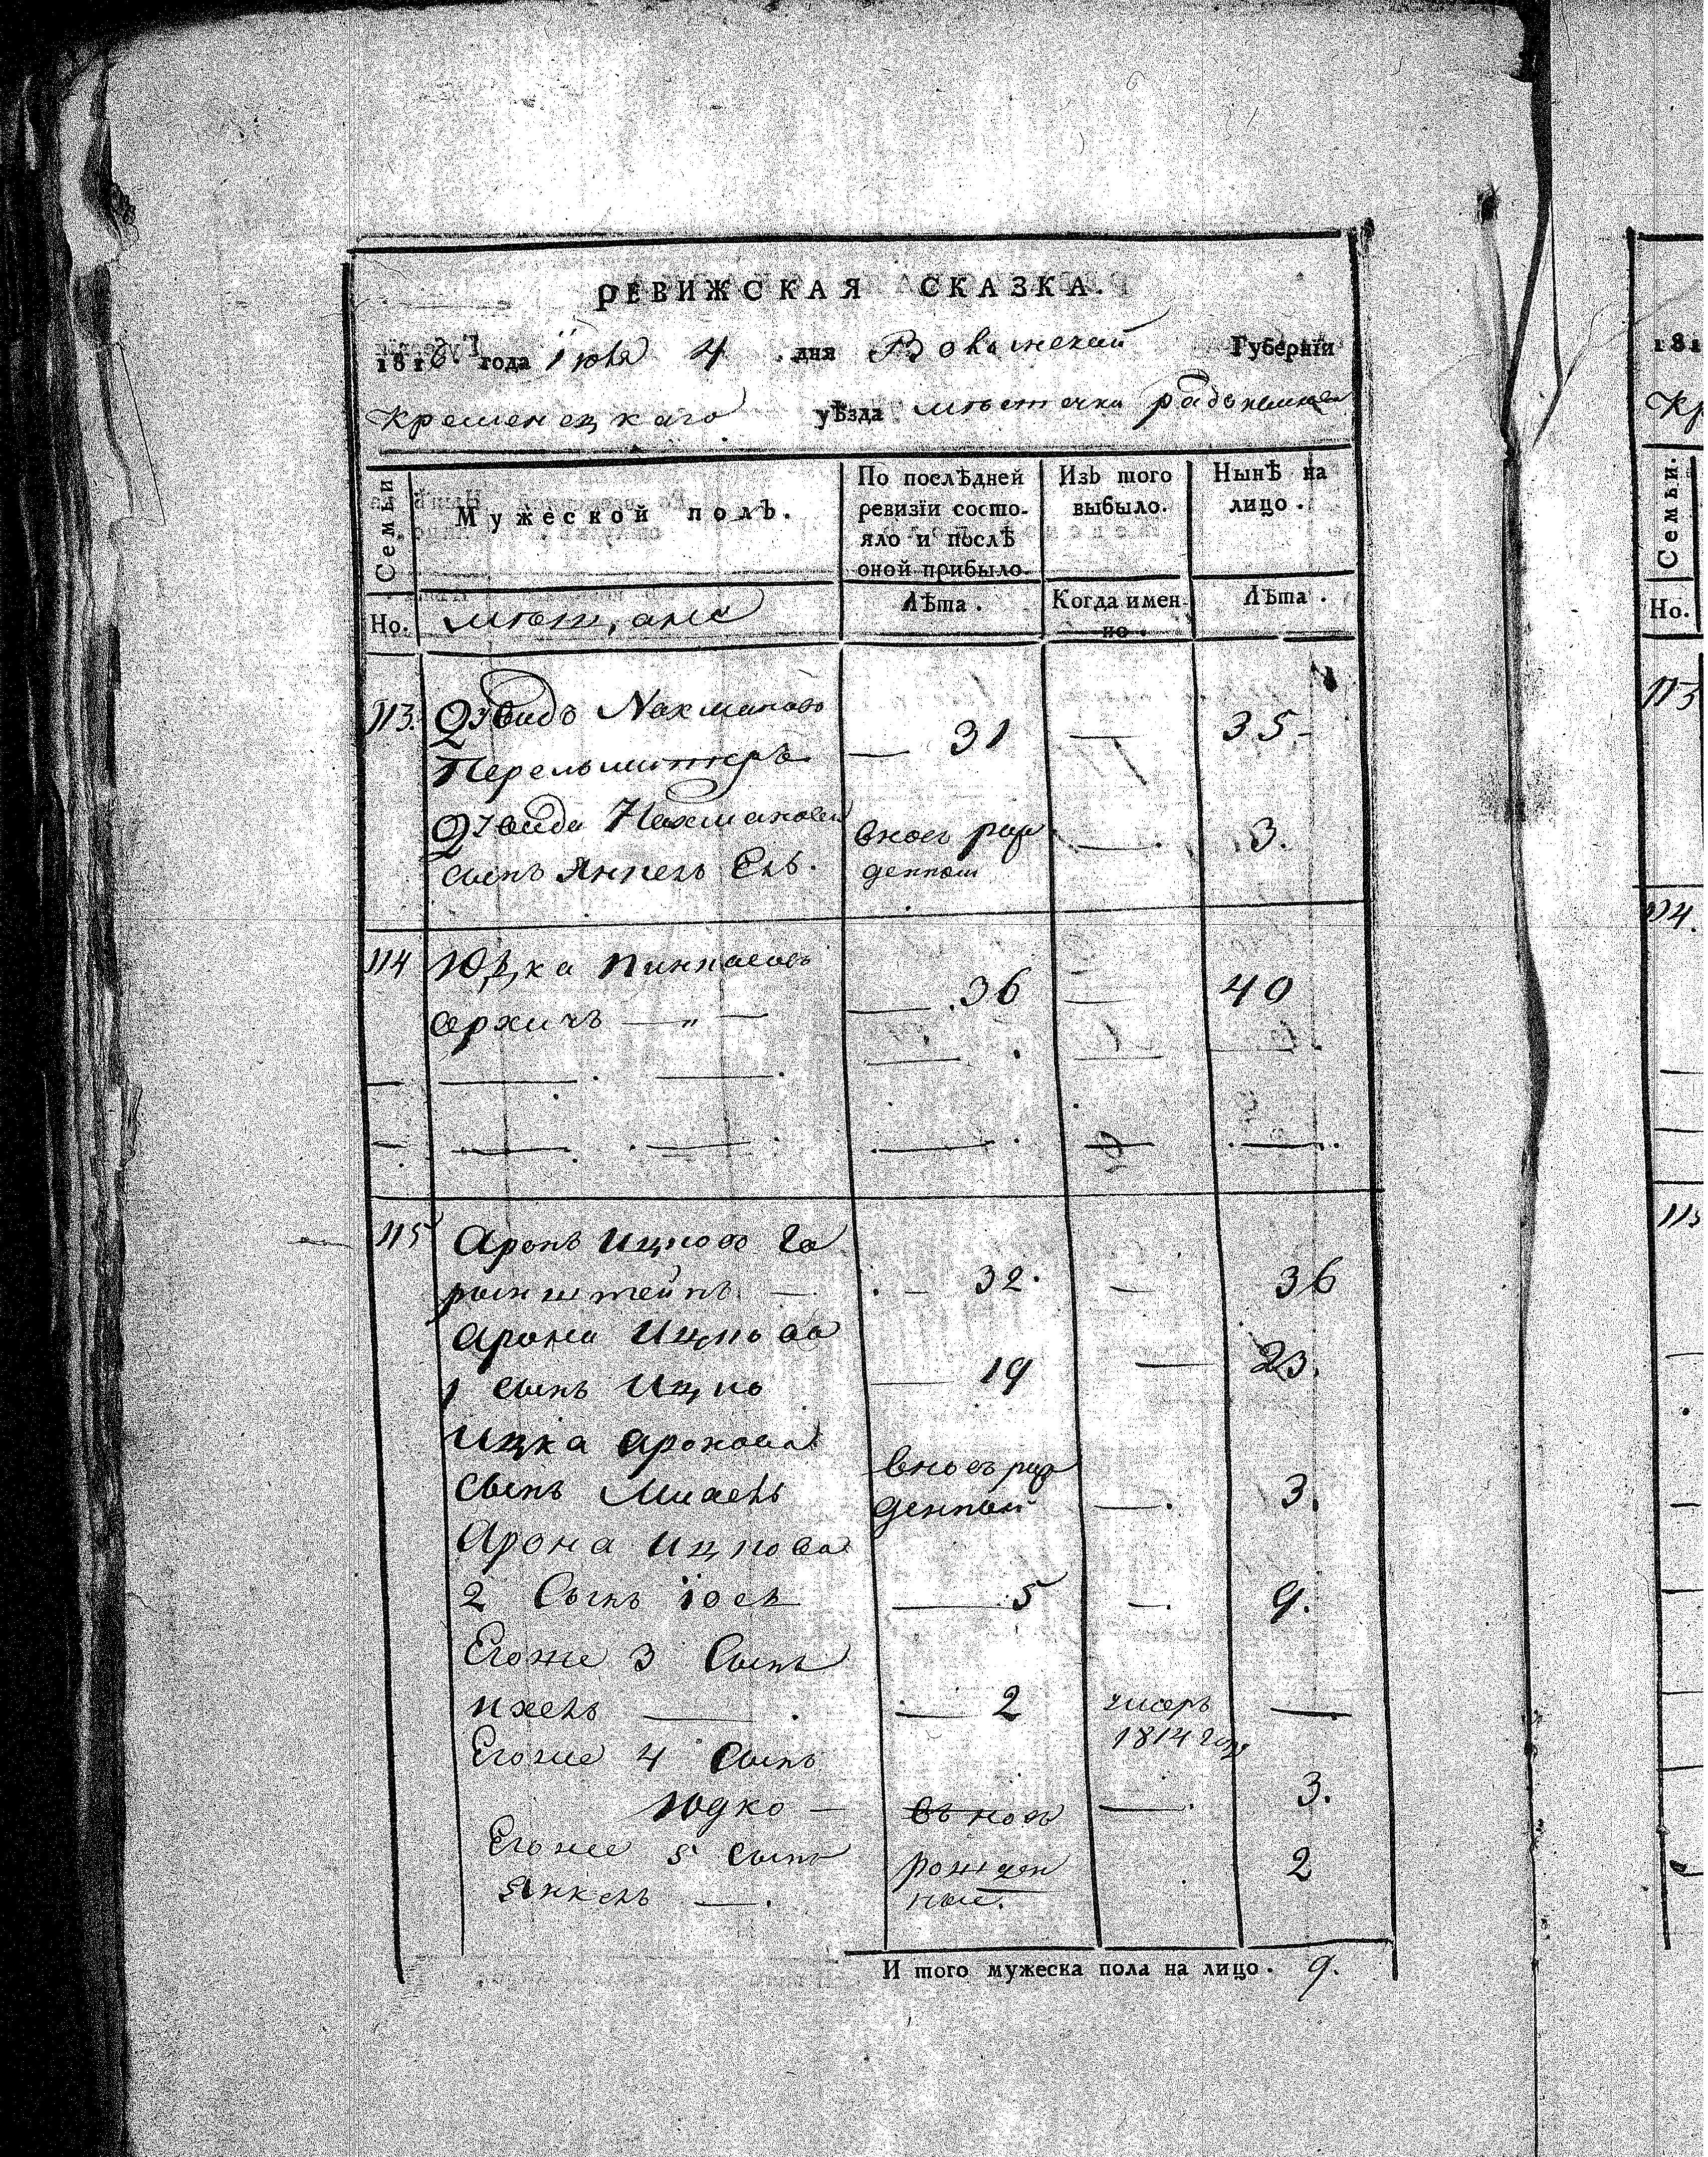 РЕВИЖСКАЯ СКАЗКА.
1816. года Iюля 4 дня Волынской Губернїи
Кременецкаго уѣзда мѣстечка
Семьи
Мужеской полъ.
По послѣдней
ревизїи состо-
яло и послѣ
оной прибыло.
Изъ того
выбыло.
Нынѣ на
лицо.
Но.
мѣщане
Лѣта.
Когда имен-
но.
Лѣта.
113. Давидъ Нахмановъ
Перельмитеръ — 31 — 35
Давида Нахманова вновь рож
сынъ Янкель Бер. денной — 3.
114 Юдка Пинкасовъ
— 36 — 40
115 Аронъ Ицковъ Го
ринштейнъ — 32. — 36
Арона Ицкова
1 сынъ Ицко — 19 — 23.
Ицка Аронова вновь рож
сынъ Михель денной — 3.
Арона Ицкова
2 Сынъ Iось — 5 — 9.
Егоже 3 Сынъ
Ихель — 2 умеръ —
1814 году
Егоже 4 Сынъ
Юдко — въ новъ — 3.
Егоже 5 Сынъ рожден 2
Янкель — ные.
И того мужеска пола на лицо. 9.
181
Кр
Семьи.
Но.
113
114.
115